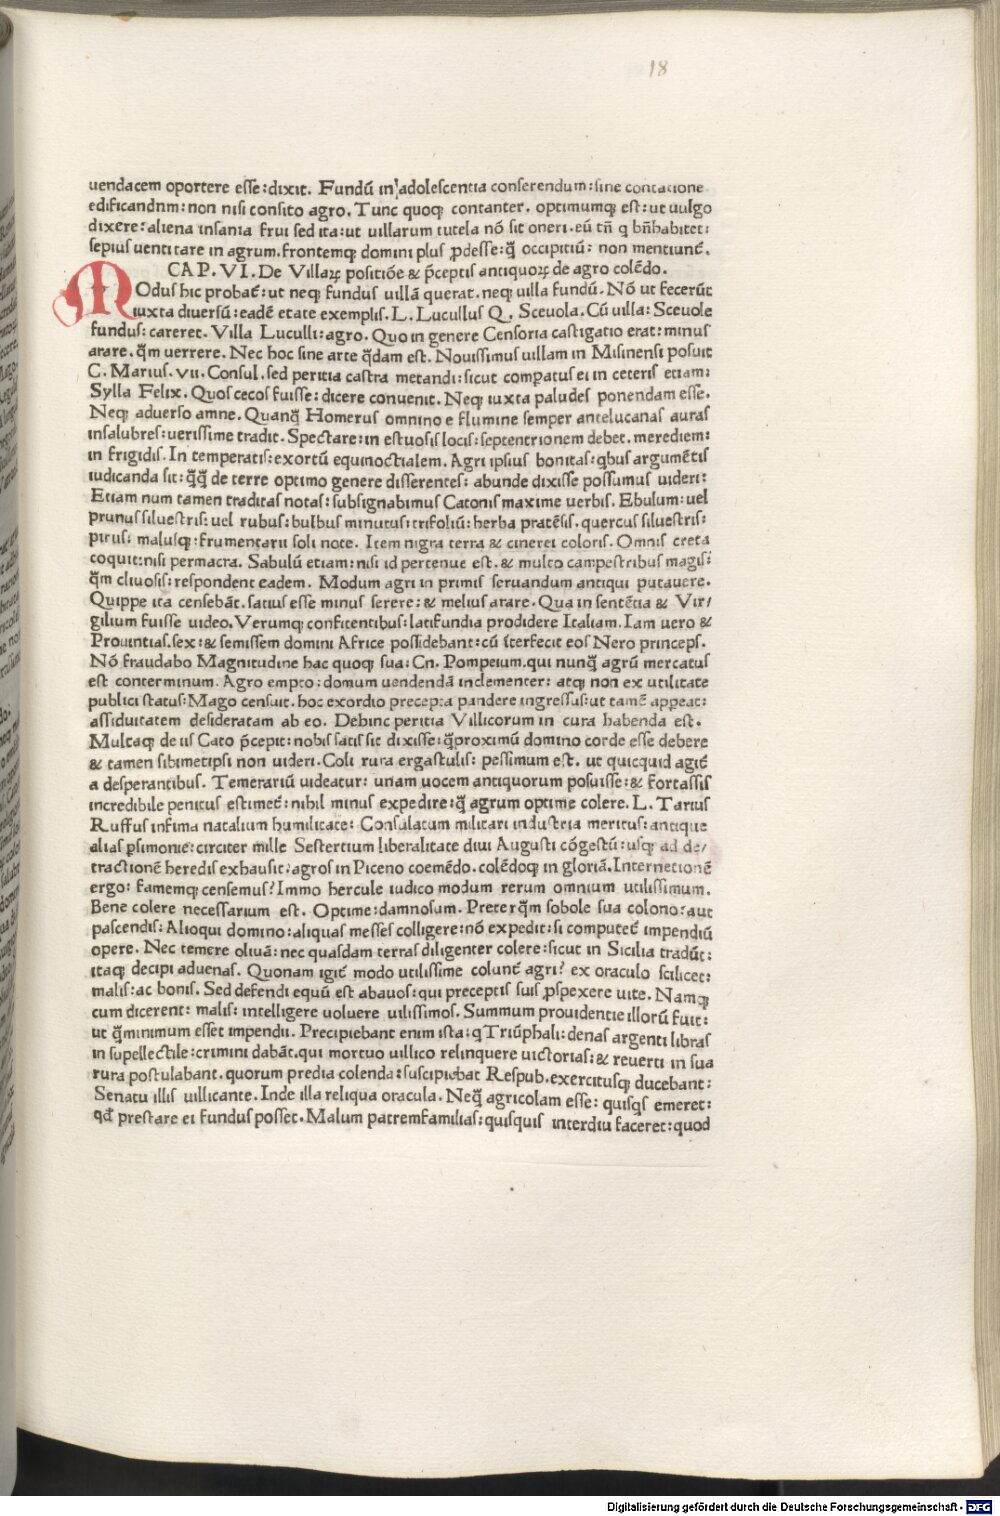 18
uendacem oportere esse:dixit. Fundū in adolescentia conserendum:sine contatione
edificandnm:non nisi consito agro. Tunc quoqꝫ contanter. optimumqꝫ est:ut uulgo
dixere:aliena insania frui sed ita:ut uillarum tutela nō sit oneri.eū tñ q bñhabitet:
sepius uentitare in agrum.frontemqꝫ domini plus ꝓdesse:q̄ȝ occipitiū: non mentiunt᷑.
CAP.VI.De Villaꝝ positiōe & p̄ceptis antiquoꝝ de agro colēdo.
MOdus hic probat᷑:ut neqꝫ fundus uillā querat.neqꝫ uilla fundū. Nō ut fecerūt
iuxta diuersū:eadē etate exemplis.L.Lucullus Q. Sceuola.Cū uilla:Sceuole
fundus:careret. Villa Luculli:agro. Quo in genere Censoria castigatio erat:minus
arare.q̄m uerrere. Nec hoc sine arte q̄dam est. Nouissimus uillam in Misinensi posuit
C.Marius.vii.Consul.sed peritia castra metandi:sicut comꝑatus ei in ceteris etiam:
Sylla Felix. Quos cecos fuisse:dicere conuenit. Neqꝫ iuxta paludes ponendam esse.
Neqꝫ aduerso amne. Quanq̄ȝ Homerus omnino e flumine semper antelucanas auras
insalubres:uerissime tradit. Spectare:in estuosis locis:septentrionem debet. merediem:
in frigidis. In temperatis:exortū equinoctialem. Agri ipsius bonitas:qbus argumētis
iudicanda sit:q̄ȝq̄ȝ de terre optimo genere disserentes: abunde dixisse possumus uideri:
Etiam num tamen traditas notas:subsignabimus Catonis maxime uerbis. Ebulum:uel
prunus siluestris:uel rubus:bulbus minutus:trifoliū:herba pratēsis.quercus siluestris:
pirus:malusqꝫ:frumentarii soli note. Item nigra terra & cinerei coloris. Omnis creta
coquit:nisi permacra. Sabulū etiam:nisi id pertenue est.& multo campestribus magis:
q̄m cliuosis:respondent eadem. Modum agri in primis seruandum antiqui putauere.
Quippe ita censebāt.satius esse minus serere:& melius arare. Qua in sentētia & Vir/
gilium fuisse uideo. Verumqꝫ confitentibus:latifundia prodidere Italiam. Iam uero &
Prouintias.sex:& semissem domini Africe possidebant:cū īterfecit eos Nero princeps.
Nō fraudabo Magnitudine hac quoqꝫ sua:Cn. Pompeium.qui nunq̄ȝ agrū mercatus
est conterminum. Agro empto:domum uendendā inclementer: atqꝫ non ex utilitate
publici status:Mago censuit.hoc exordio precepta pandere ingressus:ut tamē appeat:
assiduitatem desideratam ab eo. Dehinc peritia Villicorum in cura habenda est.
Multaqꝫ de iis Cato p̄cepit:nobis satis sit dixisse:q̄ȝproximū domino corde esse debere
& tamen sibimetipsi non uideri. Coli rura ergastulis: pessimum est. ut quicquid agit᷑
a desperantibus. Temerariū uideatur: unam uocem antiquorum posuisse:& fortassis
incredibile penitus estimet᷑:nihil minus expedire:q̄ȝ agrum optime colere. L. Tarius
Ruffus infima natalium humilitate: Consulatum militari industria meritus:antique
alias ꝑsimonie:circiter mille Sestertium liberalitate diui Augusti cōgestū:usqꝫ ad de/
tractionē heredis exhausit:agros in Piceno coemēdo.colēdoqꝫ in gloriā.Internetionē
ergo:famemqꝫ censemus? Immo hercule iudico modum rerum omnium utilissimum.
Bene colere necessarium est. Optime:damnosum. Preterq̄m sobole sua colono:aut
pascendis: Alioqui domino:aliquas messes colligere:nō expedit:si computet᷑ impendiū
opere. Nec temere oliuā:nec quasdam terras diligenter colere:sicut in Sicilia tradūt:
itaqꝫ decipi aduenas. Quonam igit᷑ modo utilissime colunt᷑ agri? ex oraculo scilicet:
malis:ac bonis. Sed defendi equū est abauos:qui preceptis suis ꝓspexere uite. Namqꝫ
cum dicerent: malis: intelligere uoluere uilissimos. Summum prouidentie illorū fuit:
ut q̄ȝminimum esset impendii. Precipiebant enim ista:q Triūphali:denas argenti libras
in supellectile:crimini dabāt.qui mortuo uillico relinquere uictorias:& reuerti in sua
rura postulabant.quorum predia colenda:suscipiebat Respub.exercitusqꝫ ducebant:
Senatu illis uillicante. Inde illa reliqua oracula. Neqꝫ agricolam esse: quisqs emeret:
qđ prestare ei fundus posset. Malum patremfamilias:quisquis interdiu faceret:quod
Digitalisierung gefördert durch die Deutsche Forschungsgemeinschaft - DFG